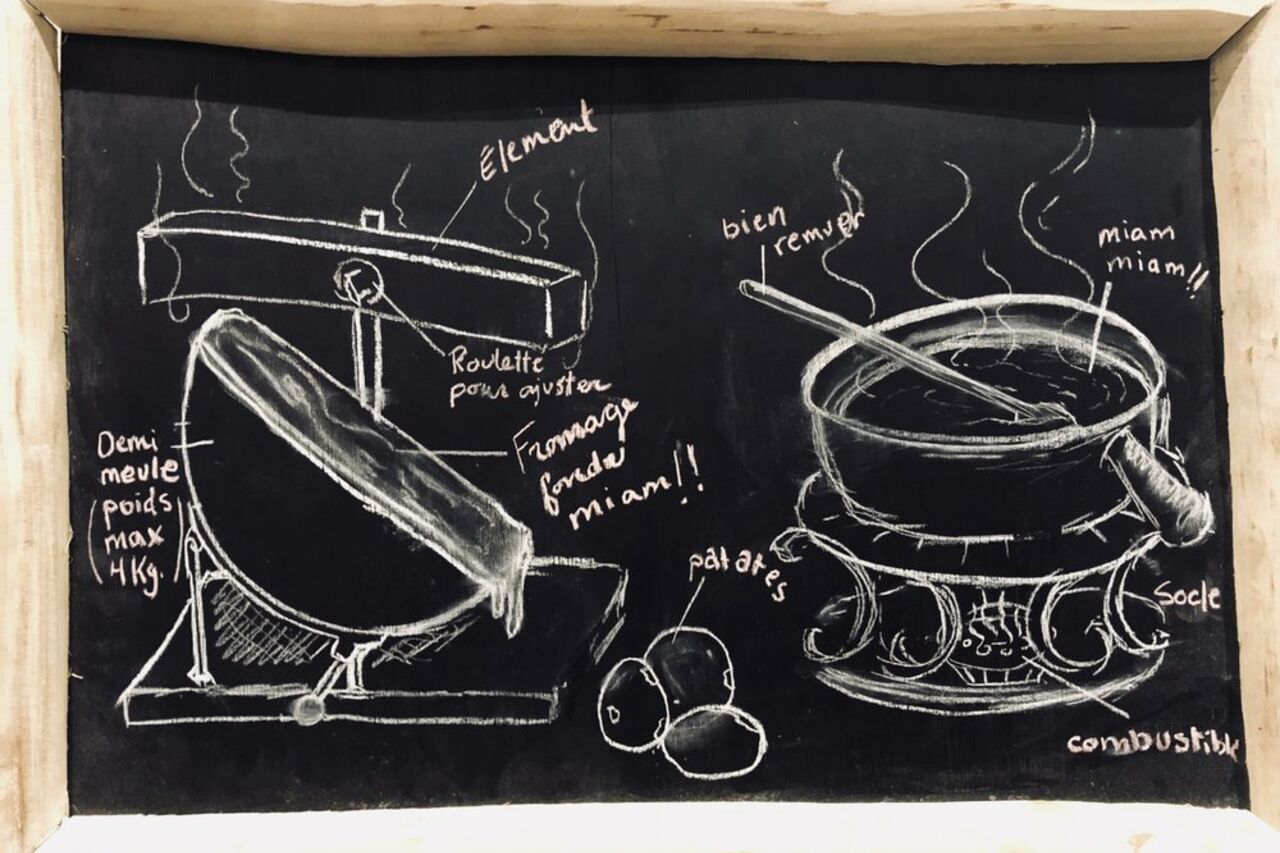 Élément
Roulette
pour ajuster
Demi
meule
(poids
max
4Kg.)
Fromage
fondu
miam!!
patates
bien
remuer
miam
miam!!
Socle
combustible